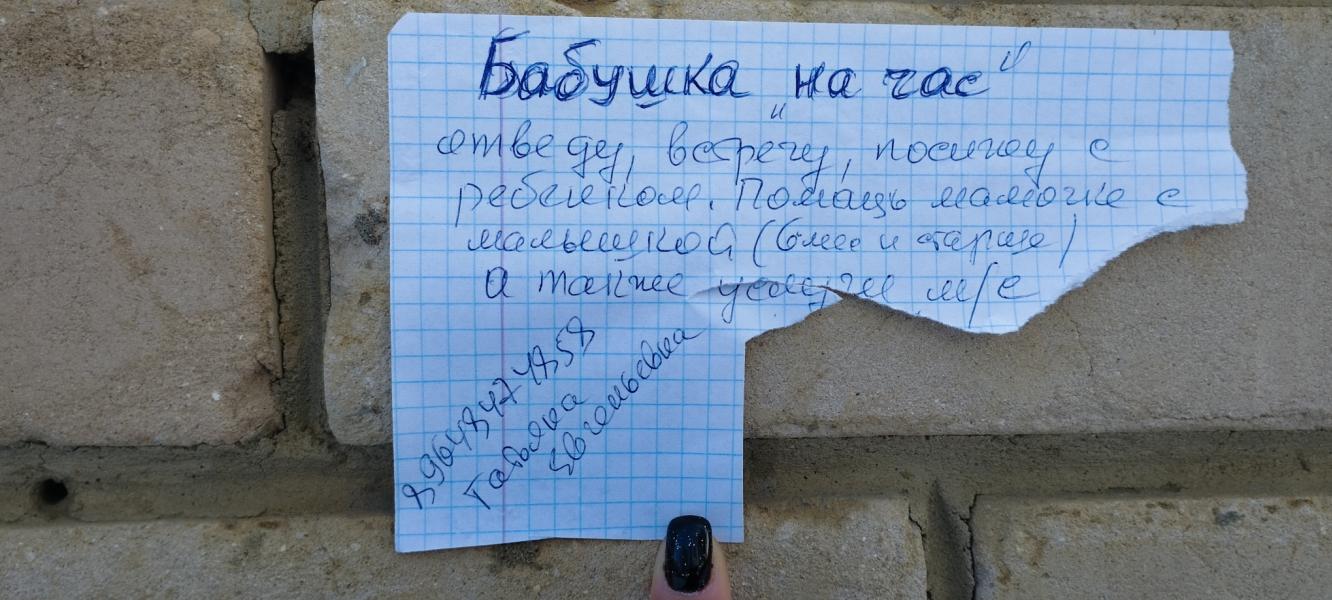 Бабушка „на час"
отведу, встречу, посижу с
ребёнком. Помощь мамочке с
малышкой (6 мес и старше)
а также услуги м/с
89648474858
Татьяна
Евгеньевна